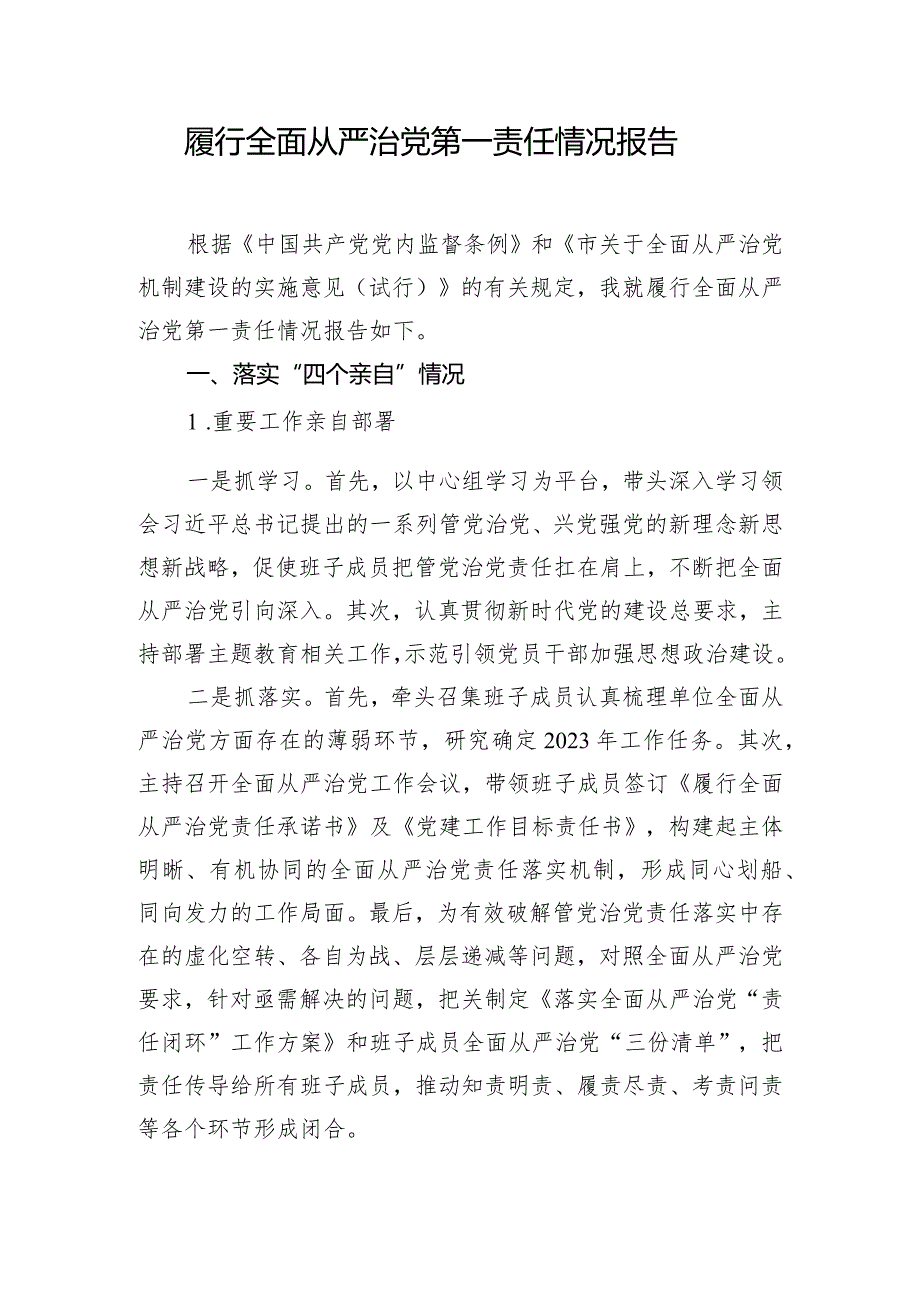 履行全面从严治党第一责任情况报告
根据《中国共产党党内监督条例》和《市关于全面从严治党
机制建设的实施意见（试行）》的有关规定，我就履行全面从严
治党第一责任情况报告如下。
一、落实“四个亲自”情况
1 .重要工作亲自部署
一是抓学习。首先，以中心组学习为平台，带头深入学习领
会习近平总书记提出的一系列管党治党、兴党强党的新理念新思
想新战略，促使班子成员把管党治党责任扛在肩上，不断把全面
从严治党引向深入。其次，认真贯彻新时代党的建设总要求，主
持部署主题教育相关工作，示范引领党员干部加强思想政治建设。
二是抓落实。首先，牵头召集班子成员认真梳理单位全面从
严治党方面存在的薄弱环节，研究确定 2023 年工作任务。其次，
主持召开全面从严治党工作会议，带领班子成员签订《履行全面
从严治党责任承诺书》及《党建工作目标责任书》，构建起主体
明晰、有机协同的全面从严治党责任落实机制，形成同心划船、
同向发力的工作局面。最后，为有效破解管党治党责任落实中存
在的虚化空转、各自为战、层层递减等问题，对照全面从严治党
要求，针对亟需解决的问题，把关制定《落实全面从严治党“责
任闭环”工作方案》和班子成员全面从严治党“三份清单”，把
责任传导给所有班子成员，推动知责明责、履责尽责、考责问责
等各个环节形成闭合。